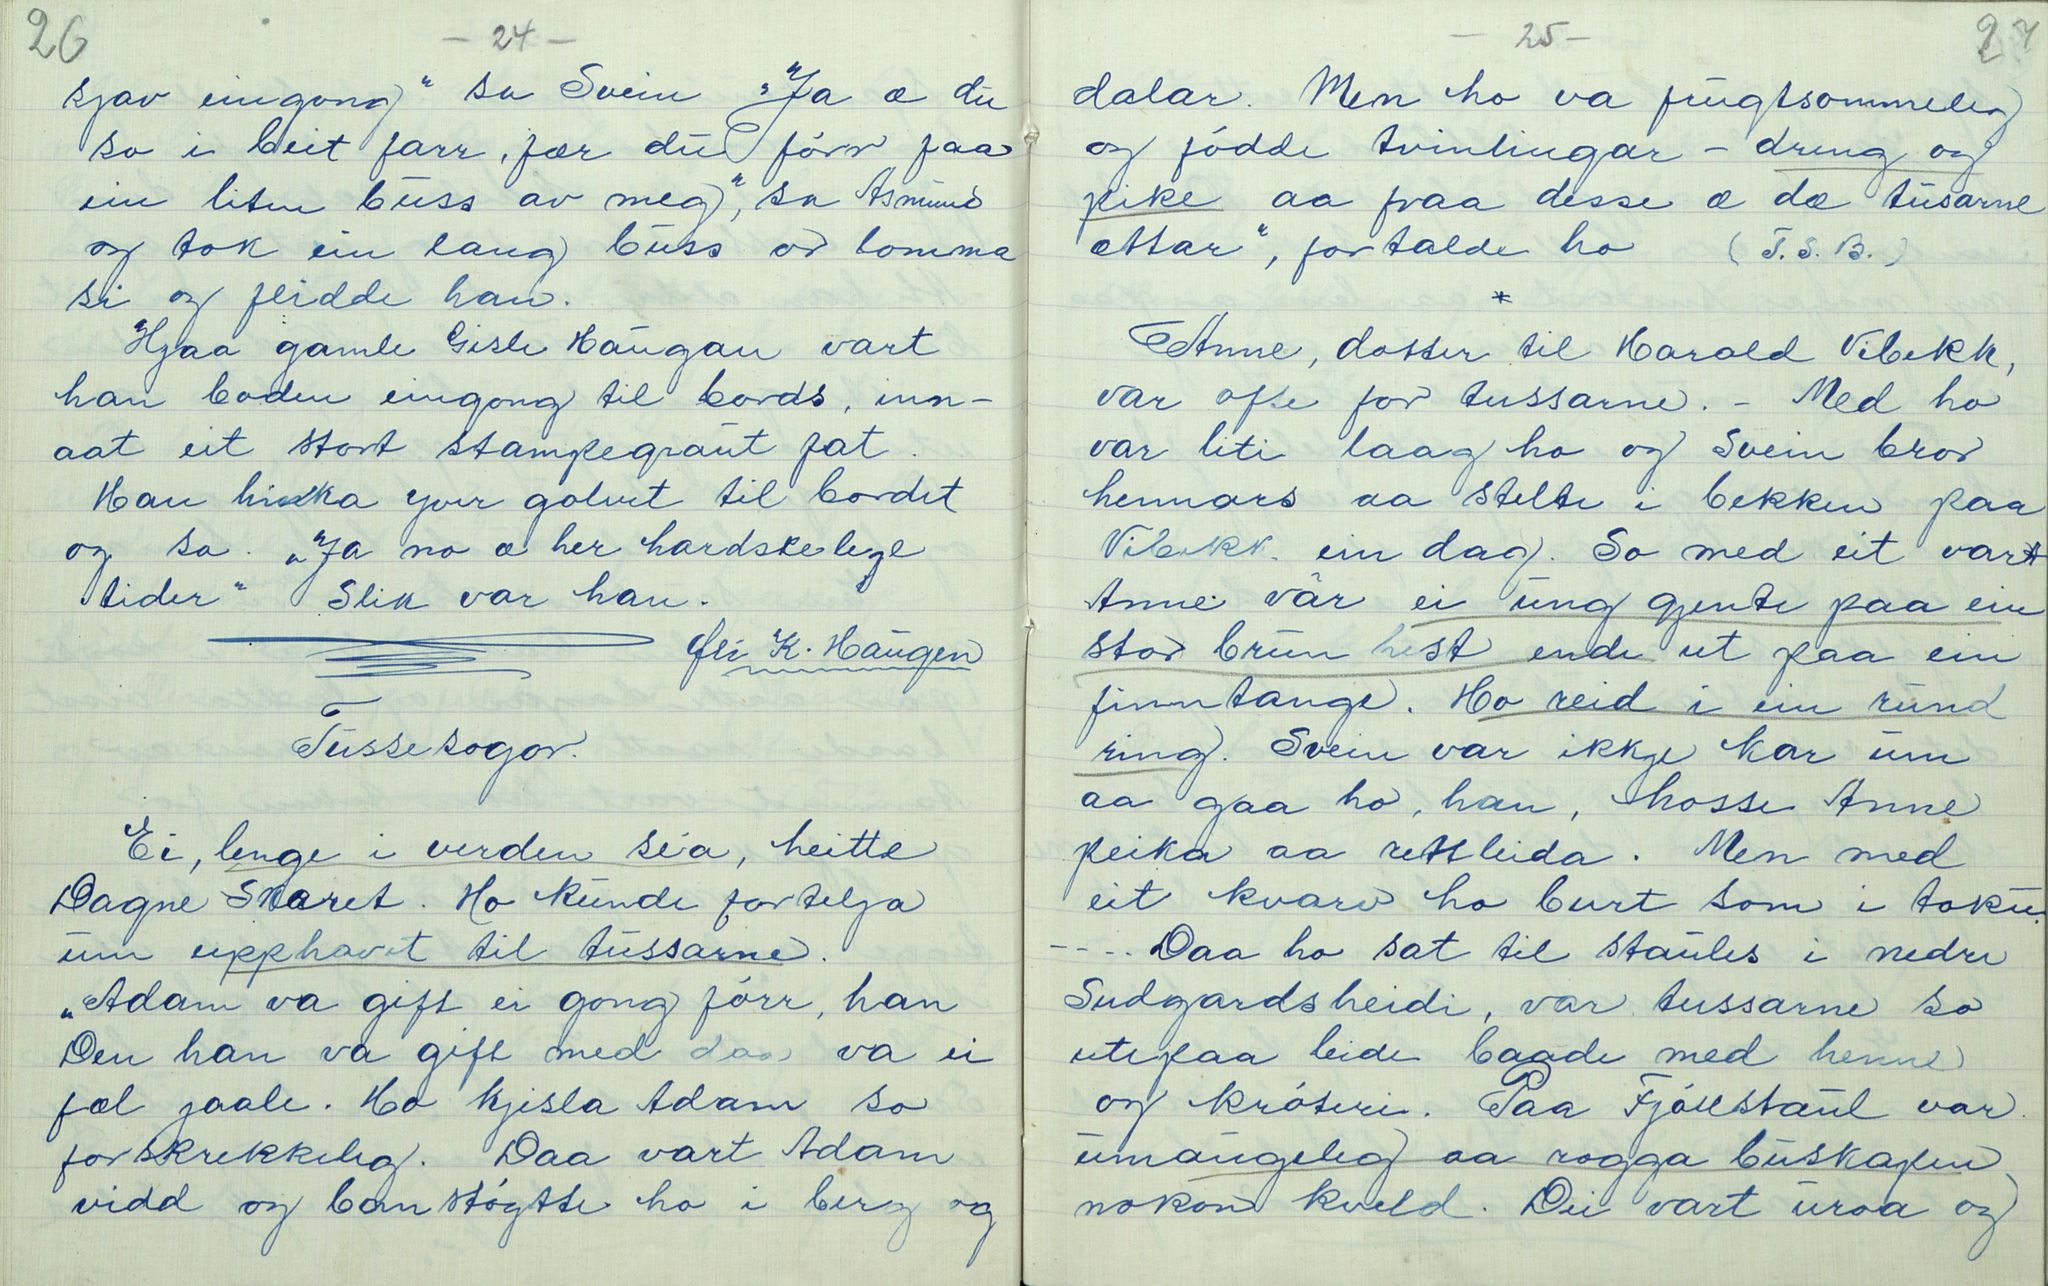 26
- 24 -
sjav eingong" sa Svein "Ja æ du
so i beit farr, fær du fórr faa
ein liten buss av meg", sa Asmund
og tok ein lang buss or lomma
si og flidde han.
Hjaa gamle Gisle Haugan vart
han boden eingong til bords, inn-
aat eit stort stampegraut fat.
Han hinka yver golvet til bordet
og sa. "Ja no æ her hardskelege
tider" Slik var han.
K. Haugen
Tussesogor.
Ei, lenge i verden séa, heitte
Dagne Skaret. Ho kunde fortelja
um upphavet til tussarne.
"Adam va gift ei gong fórr, han
Den han va gift med daa, va ei
fæl jaale. Ho kjesla Adam so
forskrekkeleg. Daa vart Adam
vidd og banstógtte ho i berg og
27
- 25 -
dalar. Men ho va frugtsommeleg
og fódde tvinlingar - dreng og
pike aa fraa desse æ dæ tusarne
ættar", fortalde ho (T.S.B.)
*
Anne, dotter til Harald Vibekk,
var ofte for tussarne. - Med ho
var liti laag ho og Svein bror
hennars aa stelte i bekken paa
Vibekk ein dag. So med eit vart
Anne vâr ei ung gjente paa ein
stor brun hest ende ut paa ein
finntange. Ho reid i ein rund
ring. Svein var ikkje kar um
aa gaa ho, han, hosse Anne
peika aa rettleida. Men med
eit kvarv ho burt som i toku.
---. Daa ho sat til staules i nedre
Sudgardsheidi, var tussarne so
utepaa leide baade med henne
og króteri. Paa Fjóllstaul var
umaugeleg aa rogga buskapen
nokon kveld. Dei vart uroa og